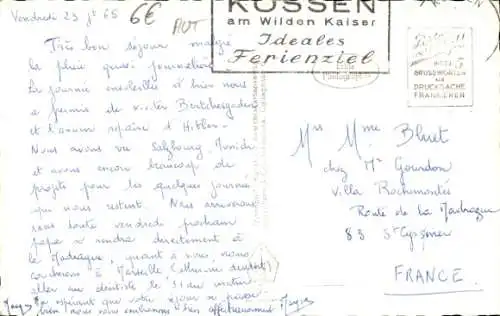 Vendredi 23 jt 65
6€
AUT
KÖSSEN
am Wilden Kaiser
Ideales
Ferienziel
MIT 5
GRUSSWORTEN
ALS
DRUCKSACHE
FRANKIEREN
Très bon séjour malgré
la pluie quasi journalière
la journée ensoleillée d'hier nous
a permis de visiter Berchtesgaden
et l'ancien repaire d'Hitler.
Nous avons vu Salzbourg Munich
et avons encore beaucoup de
projets pour les quelques journées
qui nous restent. Nous arriverons
sans doute vendredi prochain
papa se rendra directement à
la Madrague, quant à nous, nous
à Marseille
aller au dentiste le 31 au matin
espérant que votre séjour se passe
bien nous vous embrassons bien affectueusement
Mrs Mme Bluet
chez Mr Gourdon
Villa Rochemontée
Route de la Madrague
83 St Cyr s/mer
FRANCE